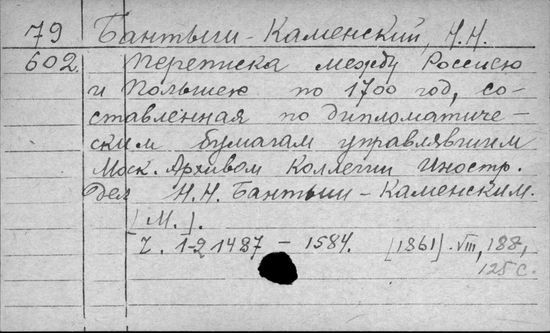 79 Бантыш-Каменский, Н.Н.
602 Переписка между Россиею
и Польшею по 1700 год, со-
ставленная по дипломатиче-
ским бумагам управлявшим
Моск. Архивом Коллегии Иностр.
Дел Н.Н. Бантыш-Каменским.
[М.].
Ч. 1-2 1487 - 1584. [1861]. VIII, 188,
125 с.